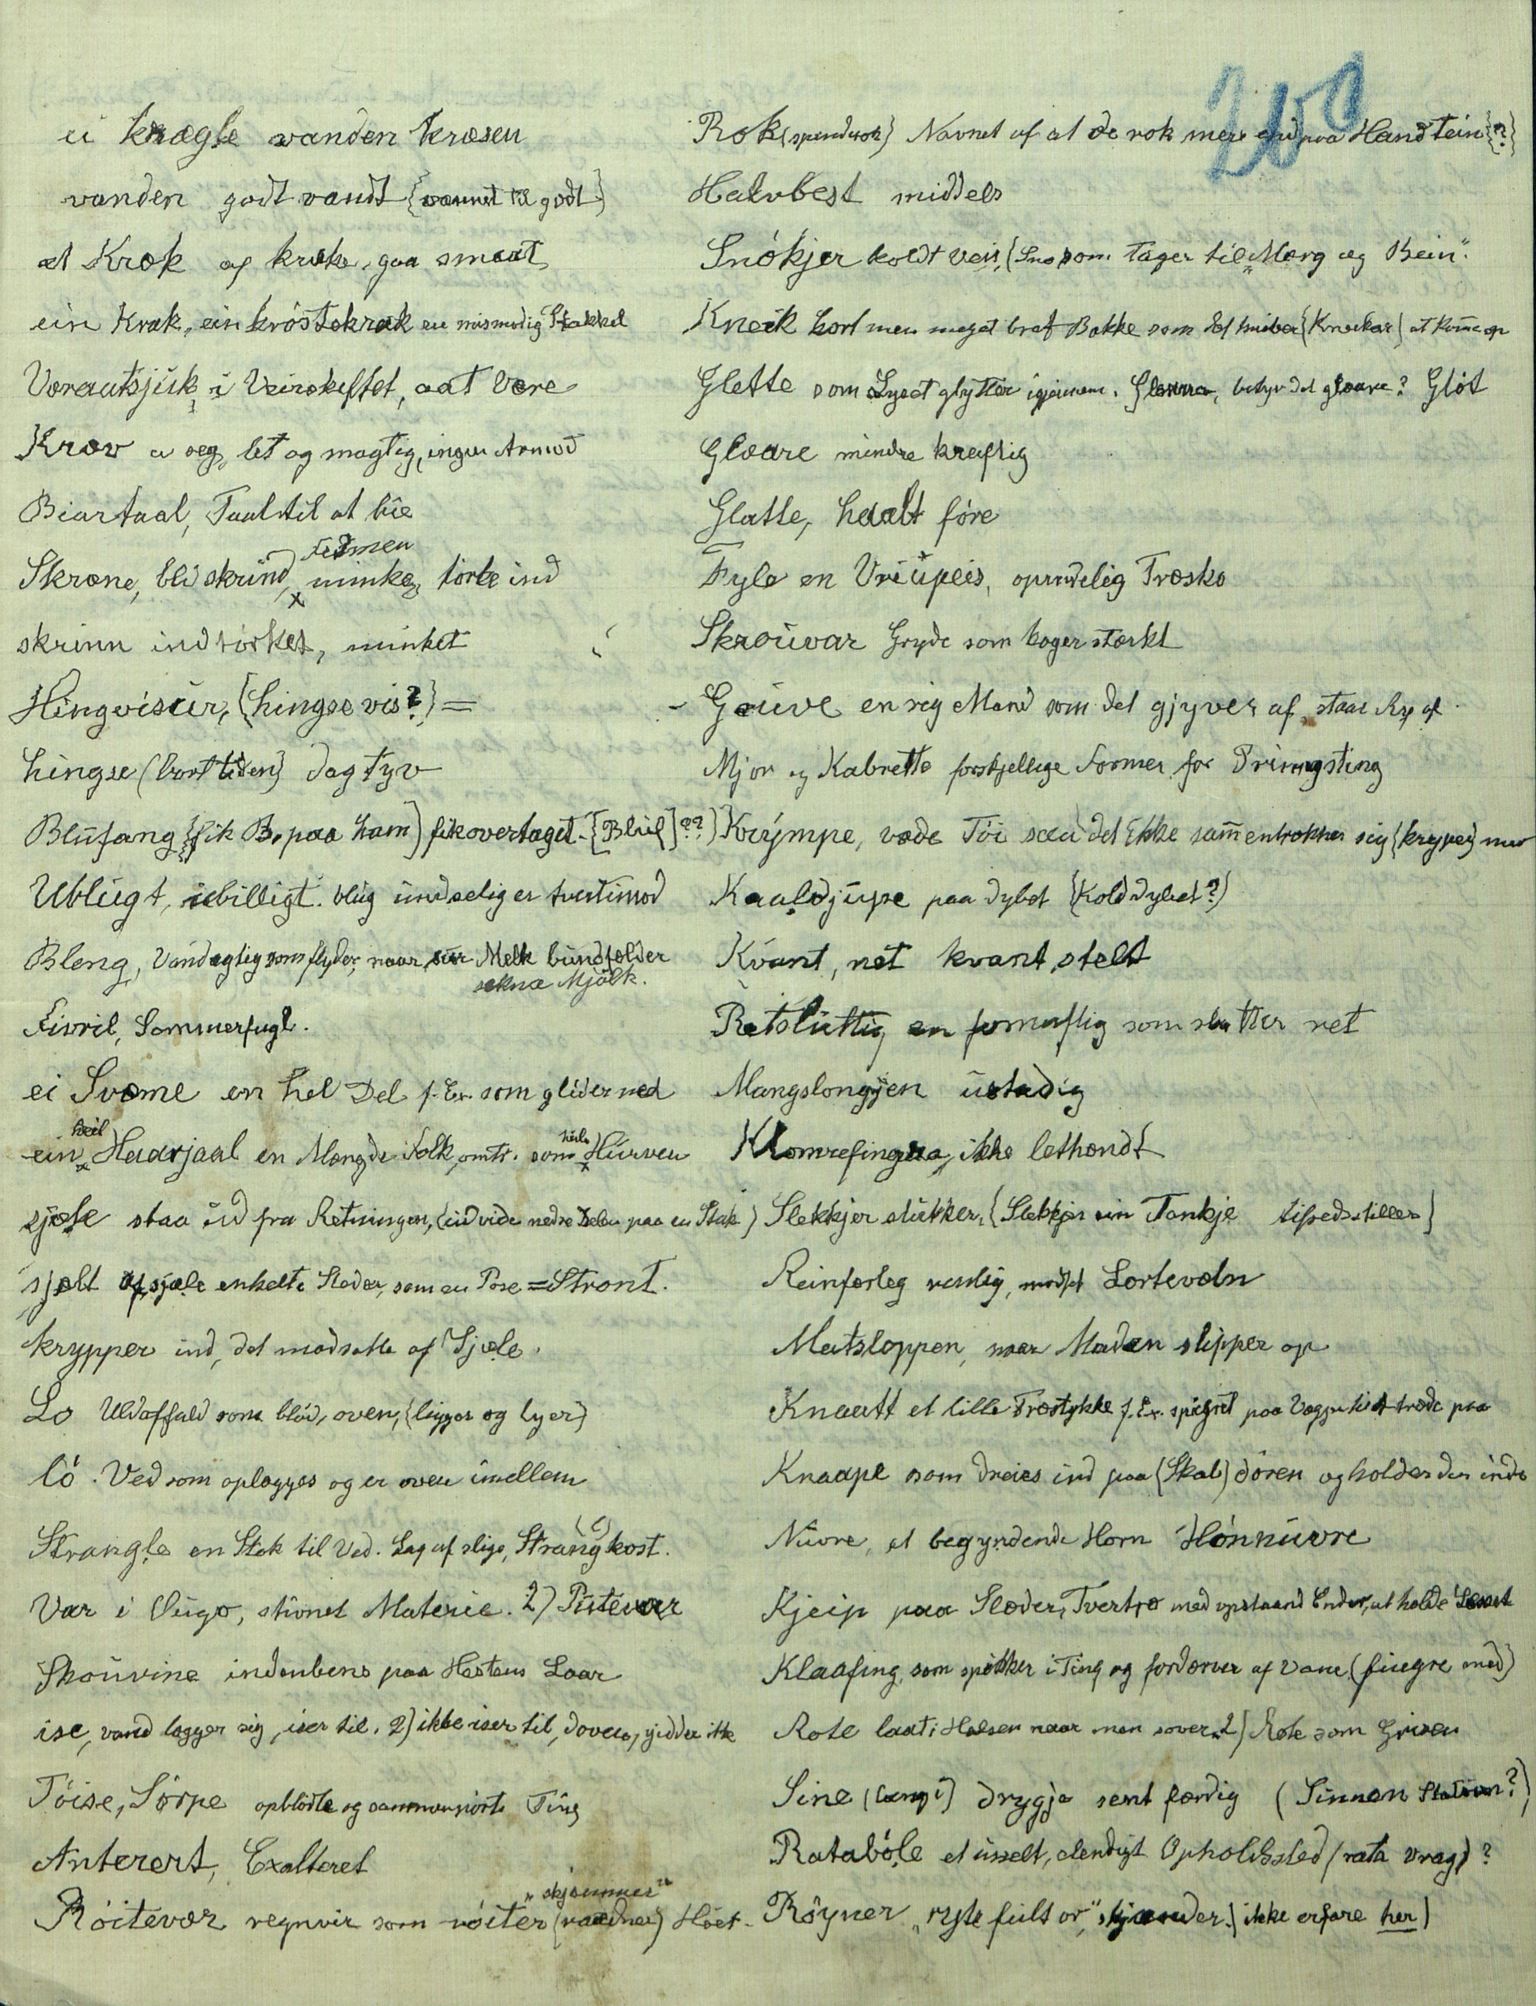 200
ei krægle vanden kræsen
vanden godt vandt {vænnet til godt}
at Kræk af kræke, gaa smaat
ein Kræk, ein bróstekræk en mismodig Stakkel
Veraatsjisk, i Veirskiftet, aat Være
Kræv a seg, let og magtig, ingen Armod
Biartaal, Taal til at bie
Skræne, bli skrind, Fedmen minke, tørke ind
skrinn indtørket, minket
Hingvisur, {hingse vis?} =
hingse (bort tiden) dagtyv
Blufang {fik B. paa ham} fik overtaget. [Blúf]??)
Ublugt, ubilligt. blug undselig er tvertimod
Bleng, Vandagtig som flyder, naar sur Melk bundfælder
sekna Mjölk.
Fivril, Sommerfugl.
ei Svæme en hel Del f. Ex. som glider ned
ein heil Haarjaal en Mængde Folk, omtr. som heile Hurven
sjæle staa ud fra Retningen, (udvide nedre Delen paa en Stak)
sjælt af sjæle enkelte Steder, som en Pose = Stront.
krypper ind, det modsatte af Sjæle.
Lo Uldaffald som blöd, oven, {ligger og lyer}
ló. Ved som oplægges og er oven imellem
Strangle en Stok til Ved. Lag af slige, Strang(l)kost.
Var i Augo, stivnet Materie. 2) Putevær
Skouvine indenbens paa Hestens Laar
ise, vand lægger sig, iser til. 2) ikke iser til, doven, gidder ikke
Töise, Sörpe opblödte og sammenrörte Ting
Anterert, Exalteret
Röitevær regnveir som röiter "skjæmmer" (raadner) Höet.
Rok (spinderok) Navnet af at de rok mere end paa Handtein {?}
Halvbest middels
Snókjer koldt Veir, (Sno som tager til "Marg og Bein".
Kneik kort men meget brat Bakke som det kniber {Kneikar} at komme op
Glette som Lyset glytter igjennem. betyr det gloare? Glöt
Gloare mindre kræftig
Glatte, haalt före
Fyle en Vriupeis, opindelig Træsko
Skrouvar Gryde som koger stærkt
- Gouve en rig Mand som det gjyver af, staar Ry af
Mjor og Kabrette forskjellige Former for Primgsting
Krympe, væde Töi saa det ikke sammentrækker sig (kryper) mer
Kaaldjupe paa dybet (Kolddybet?)
Kvant, net kvant, stelt
Retsluttig en fornuftig som slutter ret
Mangslongjen ustadig
Klomrefingra, ikke lethændt
Slekkjer slukker, {Slekkjer ein Tankje tilfredsstiller}
Reinfærleg renslig, modsat Lortevoln
Matsloppen, naar Maden slipper op
Knaatt et lille Træstykke f. Ex. spigret paa Væggen til at træde paa
Knaape som dreies ind paa (Skab) dören og holder den inde
Nuvre, et begyndende Horn Hónnuvre
Kjeip paa Slæder, Tvertræ med opstaaende Ender, at holde Læsset
Klaafing, som spikker i Ting og fordærver af Vane (fingre med)
Rote laat i Halsen naar man sover 2) Rote som Grisen
Sine (lang i) drygja sent færdig (Sinnen ?)
Rataböle et usselt, elendigt Opholdssted (rata vrag)?
Röyner, "ryte fult or", skjænder.) ikke erfare her)